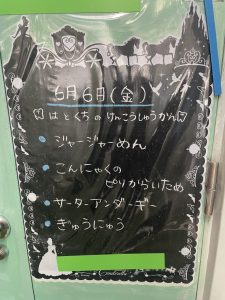 6月6日(金)
はとくちのけんこうしゅうかん
ジャージャーめん
こんにゃくの
ピリからいため
サーターアンダーギー
ぎゅうにゅう
Cinderella